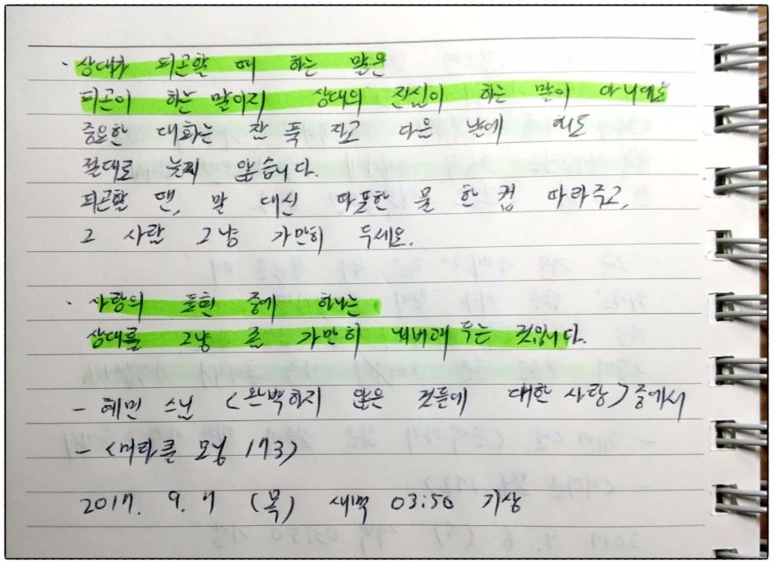 · 상대가 피곤할 때 하는 말은
피곤이 하는 말이지 상대의 진심이 하는 말이 아니에요
중요한 대화는 잔 푹 자고 다음 날에 해도
절대로 늦지 않습니다.
피곤할 땐, 말 대신 따뜻한 물 한 컵 따라주고,
그 사람 그냥 가만히 두세요.
· 사랑의 표현 중에 하나는
상대를 그냥 좀 가만히 내버려 두는 것입니다.
- 혜민 스님 <완벽하지 않은 것들에 대한 사랑> 중에서
- <미라클 모닝 173>
2017. 9. 7 (목) 새벽 03:50 기상